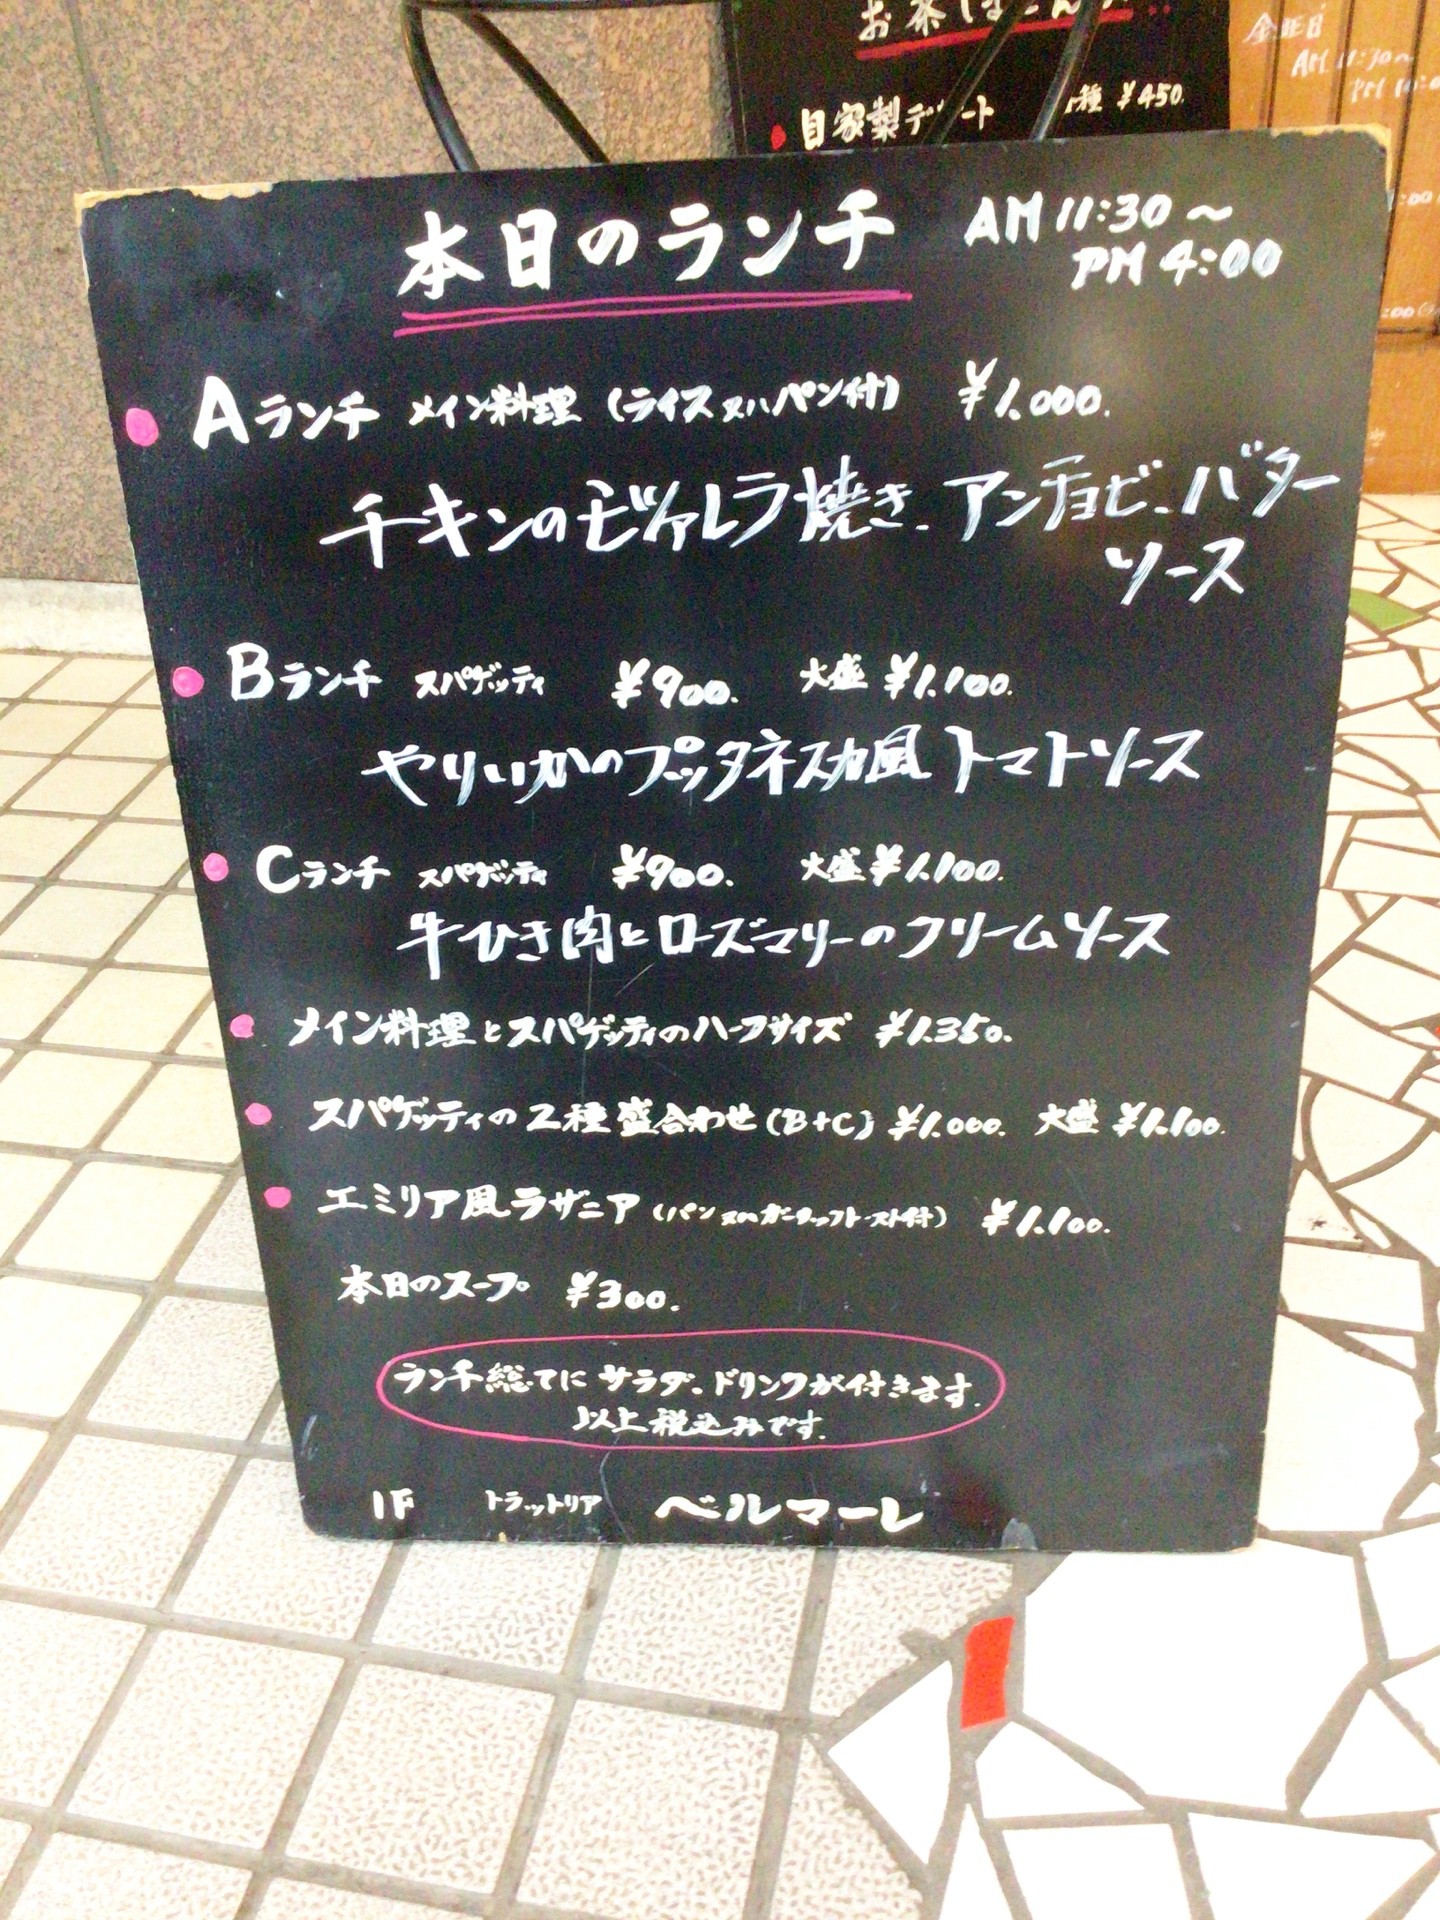 自家製デ ート 種 ¥450.
金曜日
AM 11:30～
本日のランチ AM 11:30～
PM 4:00
Aランチ メイン料理 (ライス又はパン付) ¥1.000.
チキンのモヅァレラ焼き、アンチョビ、バター
ソース
Bランチ スパゲッティ ¥900. 大盛 ¥1.100.
やりいかのプッタネスカ風トマトソース
Cランチ スパゲッティ ¥900. 大盛 ¥1.100.
牛ひき肉とローズマリーのクリームソース
メイン料理とスパゲッティのハーフサイズ ¥1.350.
スパゲッティの2種盛合わせ(B+C) ¥1.000. 大盛 ¥1.100.
エミリア風ラザニア (パン又はガーリックトースト付) ¥1.100.
本日のスープ ¥300.
ランチ総てにサラダ、ドリンクが付きます。
以上税込みです。
1F トラットリア ベルマーレ